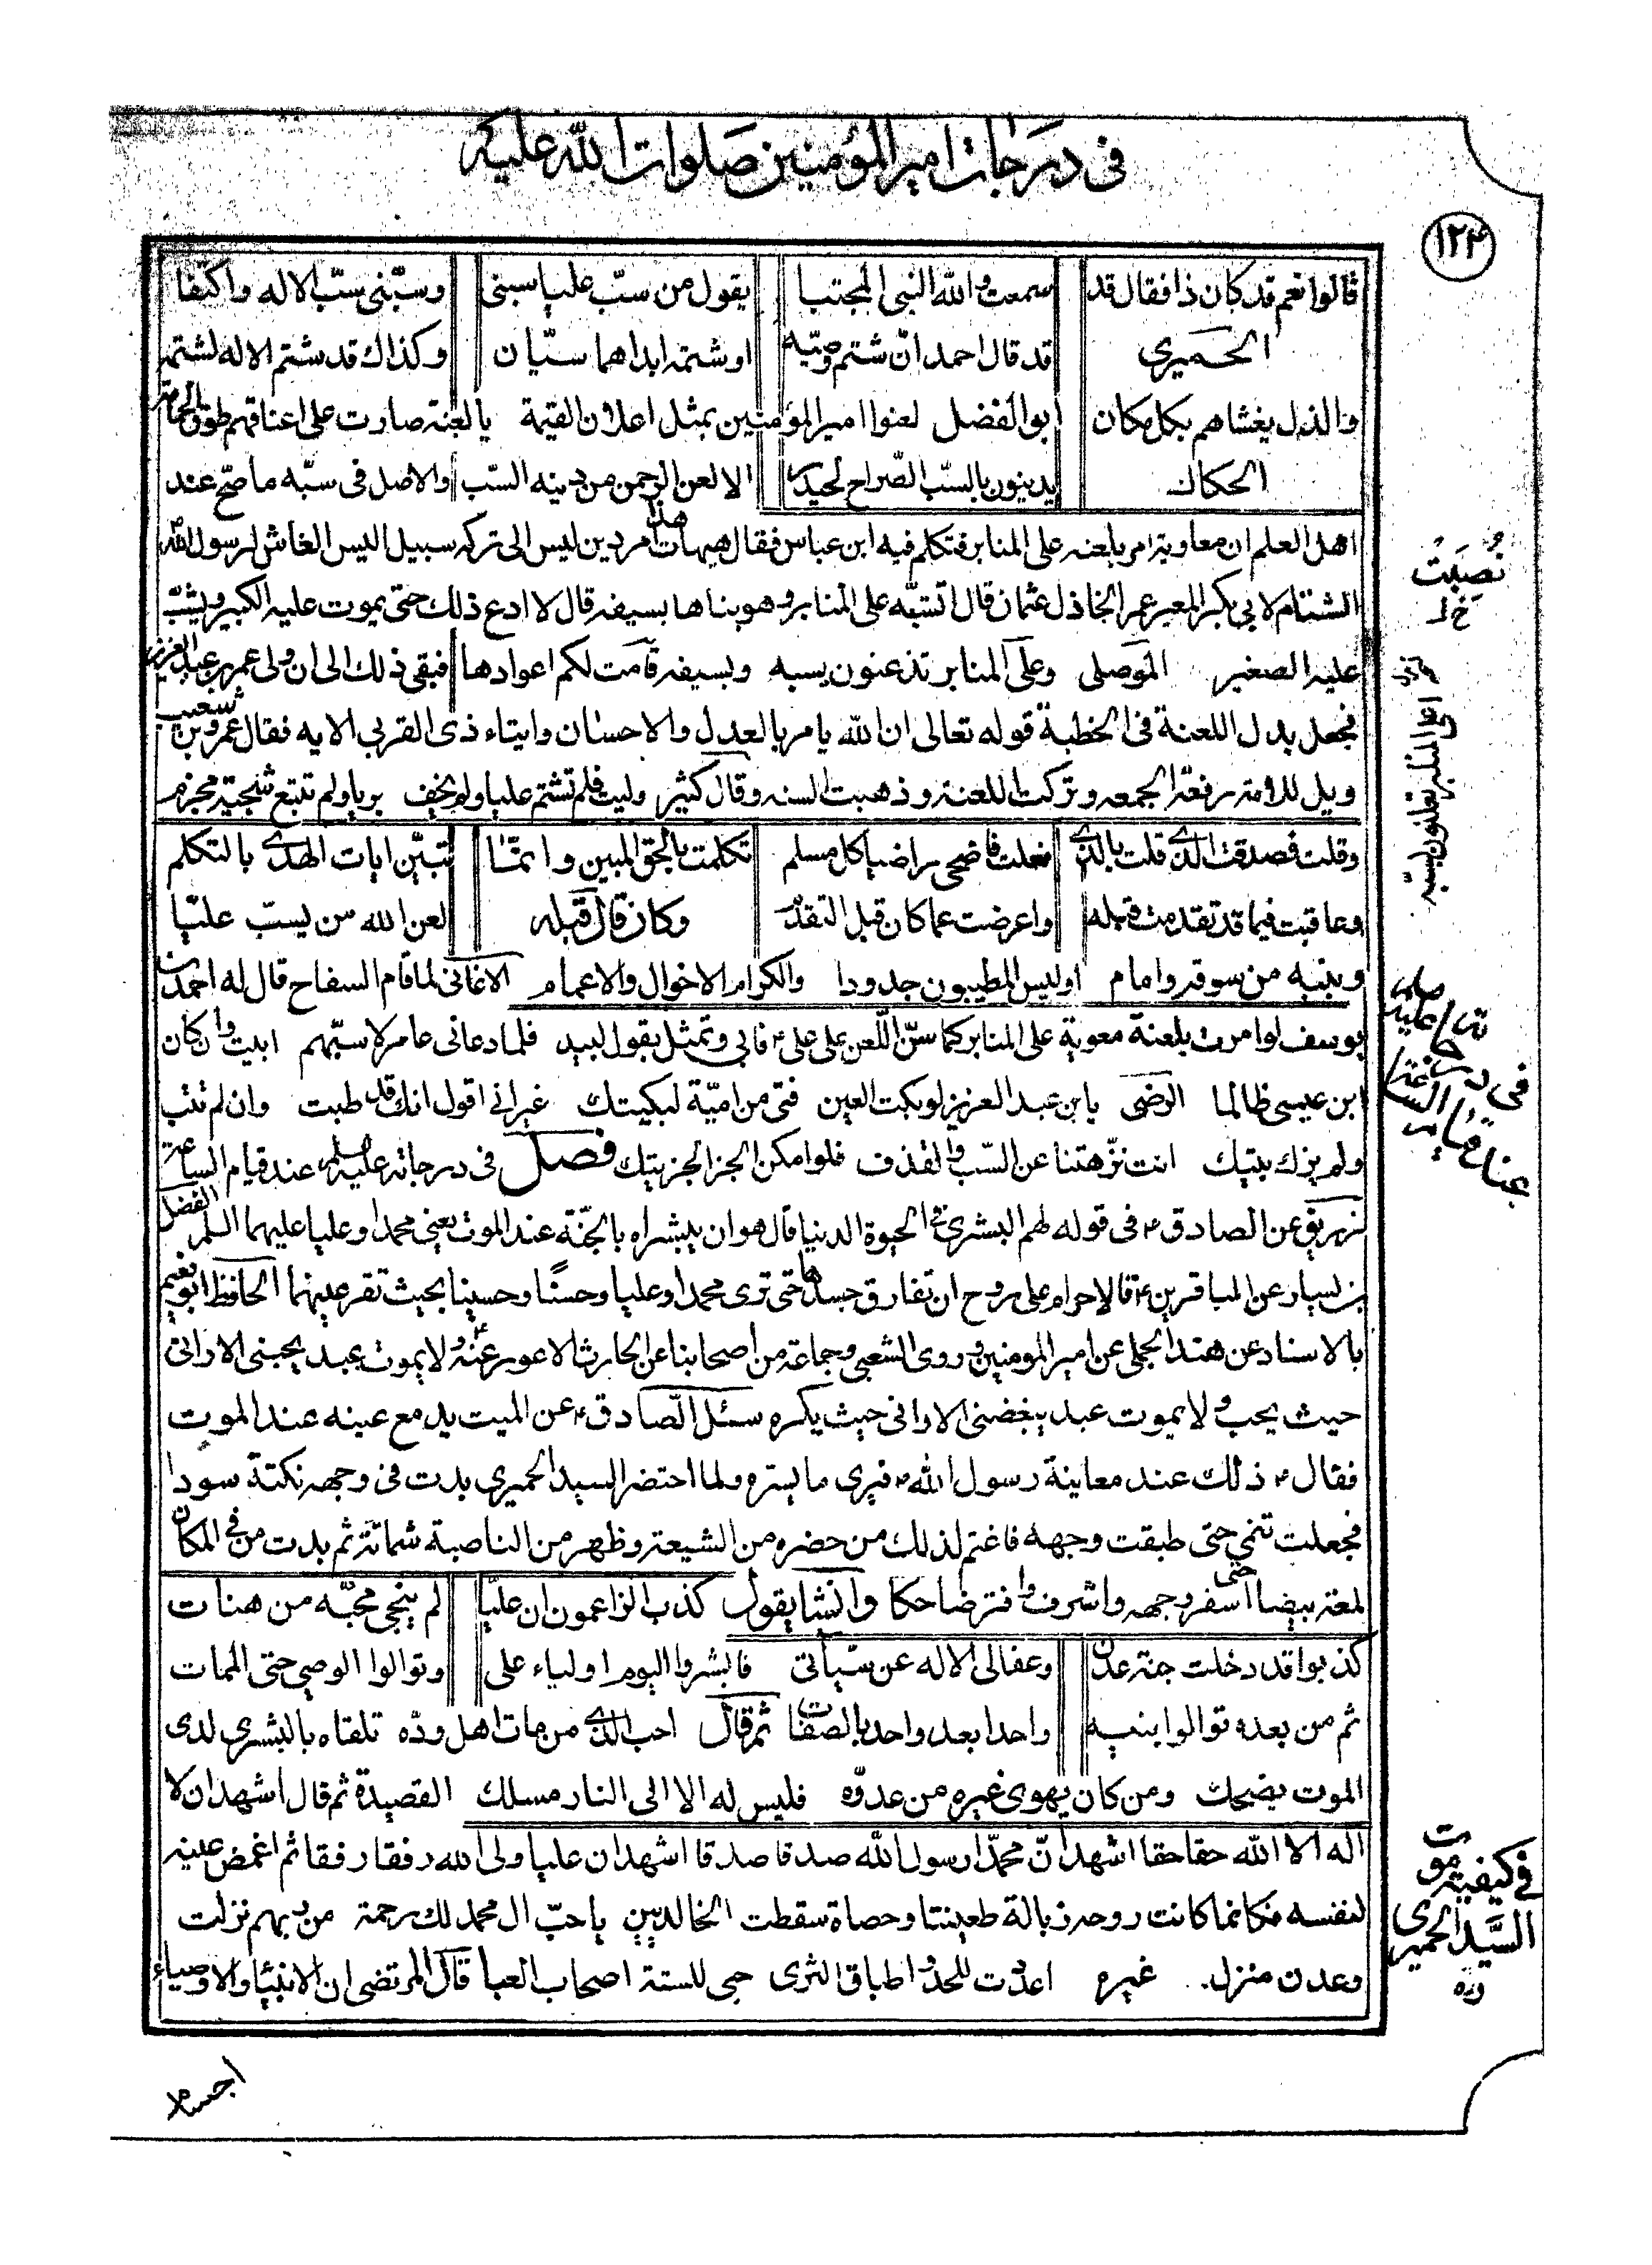 في درجات امير المؤمنين صلوات الله عليه
١٢٤
قالوا نعم قد كان ذا فقال قد سمعت والله النبي المجتبا يقول من سب عليا سبني وسبني سب الاله واكتفا
الحميري قد قال احمد ان شتم وصيه او شتمه ابدا هما سيان وكذاك قد شتم الاله لشتمه
والذل يغشاهم بكل مكان ابو الفضل لعنوا امير المؤمنين بمثل اعلان القيمة يا لعنة صارت على اعناقهم طوق الحمامة
الحكاك يدينون بالسب الصراح لحيدر الا لعن الرحمن من دينه السب والاصل في سبه ما صح عند
اهل العلم ان معاوية امر بلعنه على المنابر فتكلم فيه ابن عباس فقال هيهات هذا امر دين ليس الى تركه سبيل اليس الغاش لرسول الله
الشتام لابي بكر المعير عمر الخاذل عثمان قال اتسبه على المنابر وهو بناها بسيفه قال لا ادع ذلك حتى يموت عليه الكبير ويشب
عليه الصغير الموصلي وعلى المنابر تذعنون بسبه وبسيفه قامت لكم اعوادها فبقى ذلك الى ان ولى عمر بن عبد العزيز
فجعل بدل اللعنة في الخطبة قوله تعالى ان الله يامر بالعدل والاحسان وايتاء ذي القربى الايه فقال عمرو بن شعيب
ويل للامة رفعت الجمعه وتركت اللعنة وذهبت السنه وقال كثير وليت فلم تشتم عليا ولم تخف بريا ولم تتبع سجية مجرم
وقلت فصدقت الذي قلت بالذي فعلت فاضحى راضيا كل مسلم تكلمت بالحق المبين وانما تبين ايات الهدى بالتكلم
وعاقبت فيما قد تقدمت قبله واعرضت عما كان قبل التقدم وكان قال قبله لعن الله من يسب عليا
وبنيه من سوقة وامام اوليس المطيبون جدودا والكرام الاخوال والاعمام الاغاني لما قام السفاح قال له احمد بن
يوسف لو امرت بلعنة معوية على المنابر كما سن اللعن على علي ع فابى وتمثل بقول لبيد فلما دعاني عامر لاسبهم ابيت وان كان
ابن عيسى ظالما الرضي يا بن عبد العزيز لو بكت العين فتى من امية لبكيتك غير اني اقول انك قد طبت وان لم تطب
ولم يزك بيتك انت نزهتنا عن السب والقذف فلو امكن الجز الجزيتك فصل في درجاته عليه السلم عند قيام الساعة
زريق عن الصادق ع في قوله لهم البشرى في الحيوة الدنيا قال هو ان يبشراه بالجنة عند الموت يعني محمدا وعليا عليهما السلم الفضل
بن يسار عن الباقرين ع قالا حرام على روح ان تفارق جسدها حتى ترى محمدا وعليا وحسنا وحسينا بحيث تقر عينهما الحافظ ابو نعيم
بالاسناد عن هند الجملي عن امير المومنين وروى الشعبي وجماعة من اصحابنا عن الحارث الاعور عنه ع ولا يموت عبد يحبني الا راني
حيث يحب ولا يموت عبد يبغضني الا راني حيث يكره سئل الصادق ع عن الميت يدمع عينه عند الموت
فقال ع ذلك عند معاينة رسول الله ص فيرى ما يسره ولما احتضر السيد الحميري بدت في وجهه نكتة سودا
فجعلت تنمي حتى طبقت وجهه فاغتم لذلك من حضره من الشيعة وظهر من الناصبة شماتة ثم بدت من في المكان
لمعة بيضاا حتى اسفر وجهه واشرف وافتر ضاحكا وانشا يقول كذب الزاعمون ان عليا لم ينجي محبه من هنات
كذبوا قد دخلت جنة عدن وعفا لى الاله عن سيأتي فابشروا اليوم اولياء على وتوالوا الوصي حتى الممات
ثم من بعده توالوا بنيه واحدا بعد واحد بالصفات ثم قال احب الذي من مات اهل وده تلقاه بالبشرى لدى
الموت يضحك ومن كان يهوى غيره من عدوه فليس له الا الى النار مسلك القصيدة ثم قال اشهد ان لا
اله الا الله حقا حقا اشهد ان محمدا رسول الله صدقا صدقا اشهد ان عليا ولى الله رفقا رفقا ثم اغمض عينه
لنفسه فكانما كانت روحه ذبالة طفيتا وحصاة سقطت الخالديين يا حب ال محمد لك رحمة من ربهم نزلت
وعدن منزل. غيره اعددت للحد واطباق الثرى حبي للستة اصحاب العبا قال المرتضى ان الانبيا والاوصياء
نصبت
خ ل
افوا المنابر تعلنون بسبه
في درجاته عليه صلى
عند قيام الساعة
في كيفية موت
السيد الحميري
ره